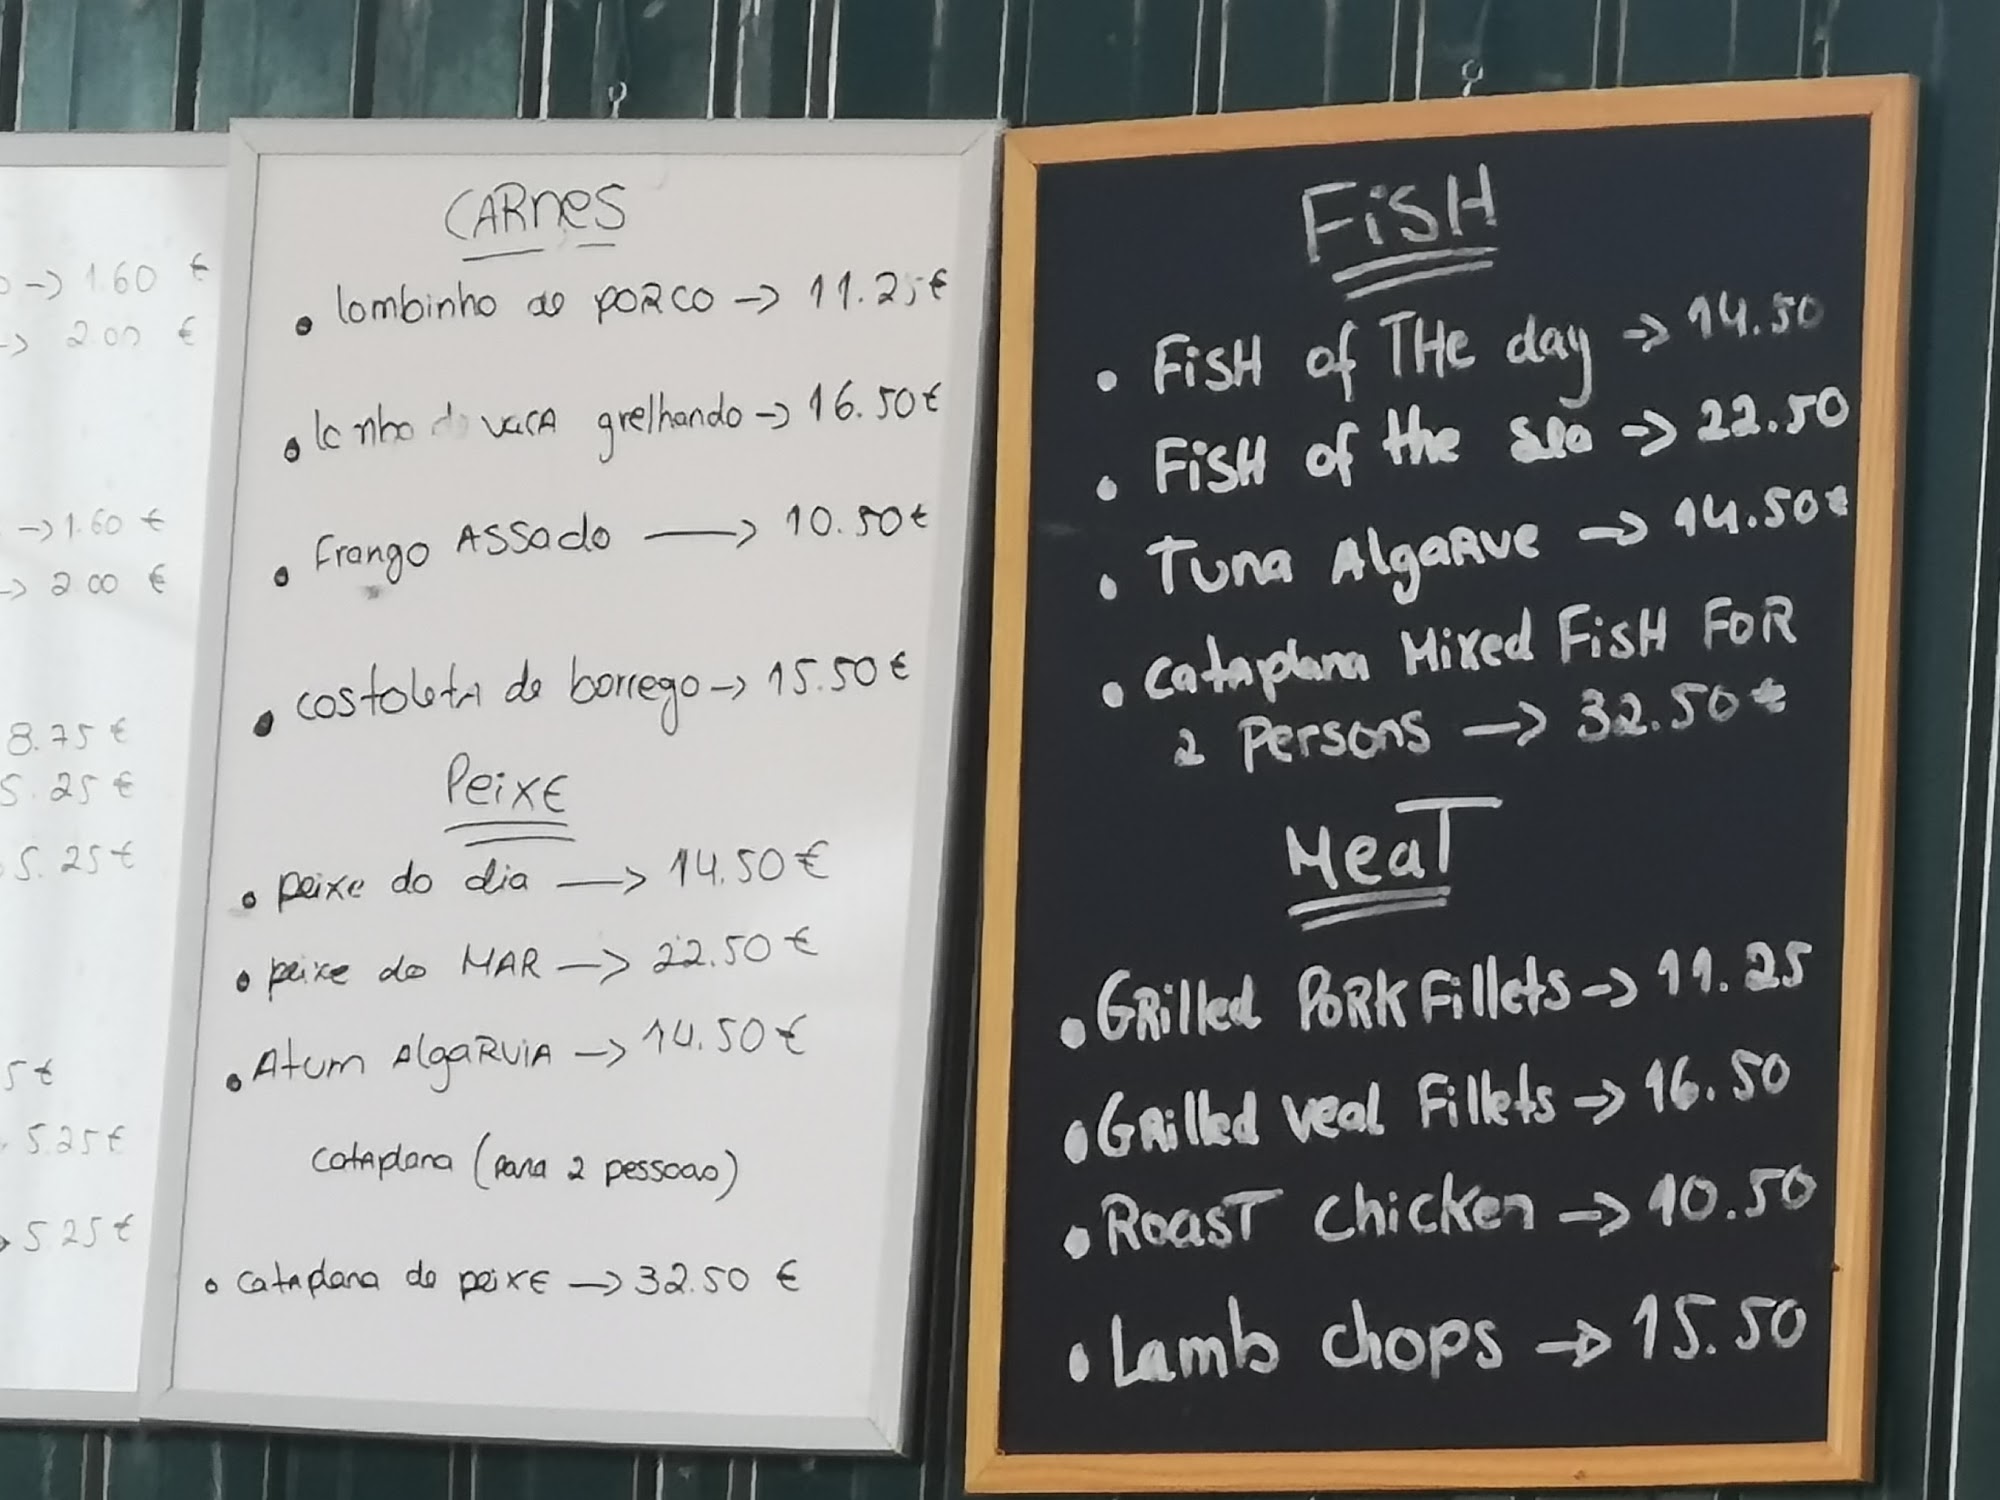 → 1.60 €
→ 2.00 €
→ 1.60 €
→ 2.00 €
8.75 €
5.25 €
5.25 €
5 €
5.25 €
5.25 €
CARnes
• lombinho de PORCO → 11.25 €
• vaca grelhando → 16.50 €
• Frango Assado → 10.50 €
• costoleta de borrego → 15.50 €
Peixe
• peixe do dia → 14.50 €
• peixe do MAR → 22.50 €
• Atum AlgaRviA → 14.50 €
cataplana (para 2 pessoas)
• cataplana de peixe → 32.50 €
FiSH
• FisH of THe day → 14.50
• FisH of the sea → 22.50
• Tuna AlgaRve → 14.50 €
• cataplana Mixed FisH FoR
2 Persons → 32.50 €
MeaT
• GRilled PoRK Fillets → 11.25
• GRilled veal Fillets → 16.50
• RoasT chicken → 10.50
• Lamb chops → 15.50